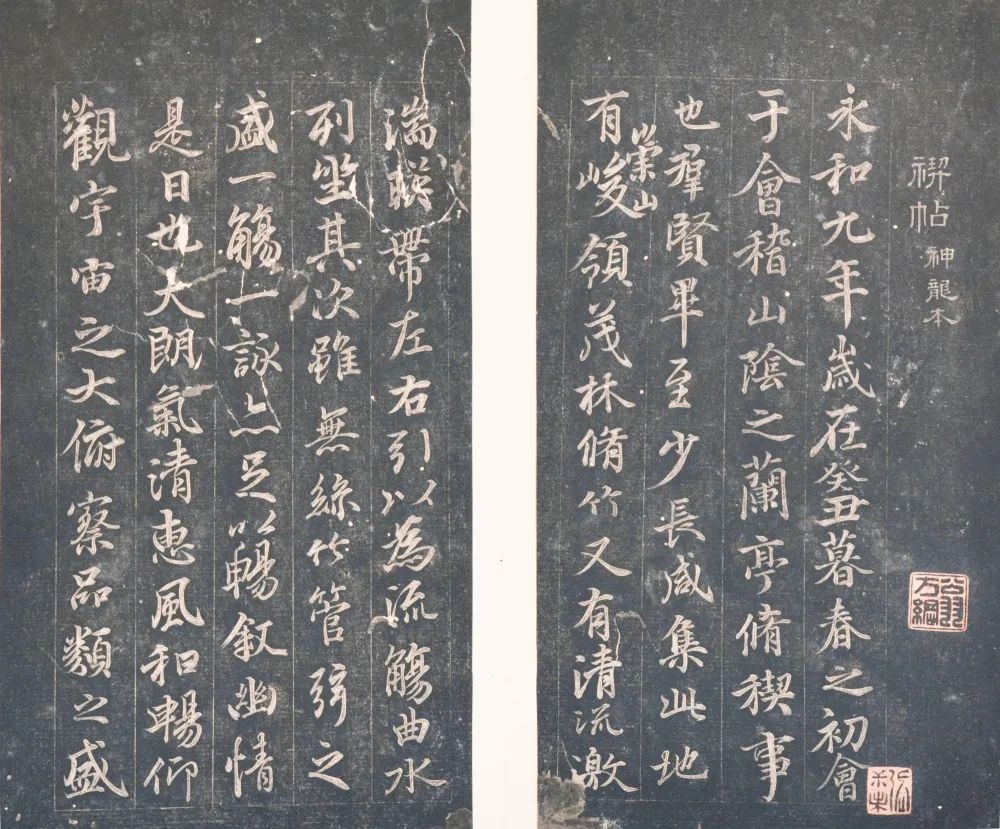 禊帖 神龍本
永和九年歲在癸丑暮春之初會
于會稽山陰之蘭亭脩稧事
也羣賢畢至少長咸集此地
有崇山峻領茂林脩竹又有清流激
湍暎帶左右引以為流觴曲水
列坐其次雖無絲竹管弦之
盛一觴一詠亦足以暢敘幽情
是日也天朗氣清惠風和暢仰
觀宇宙之大俯察品類之盛
翁方綱